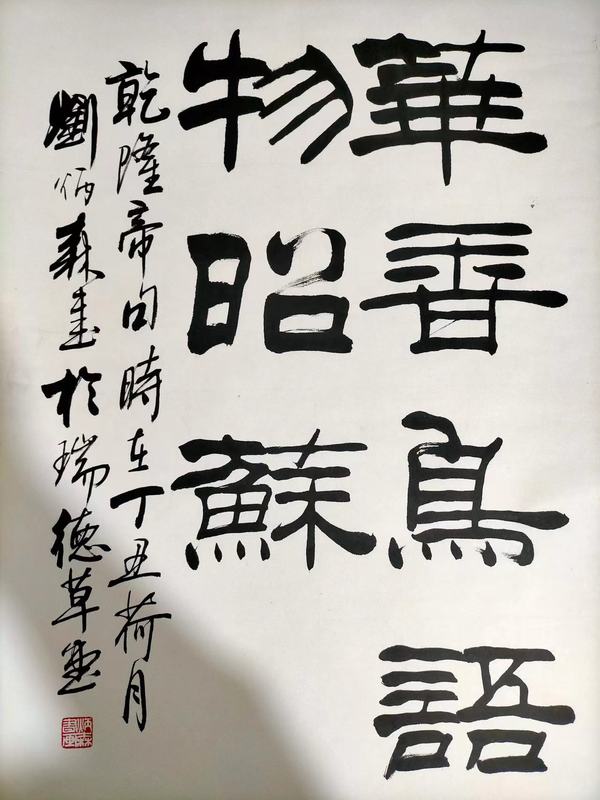 華香鳥語
物昭蘇
乾隆帝句時在丁丑荷月
劉炳森書於瑞德草
炳森
書画